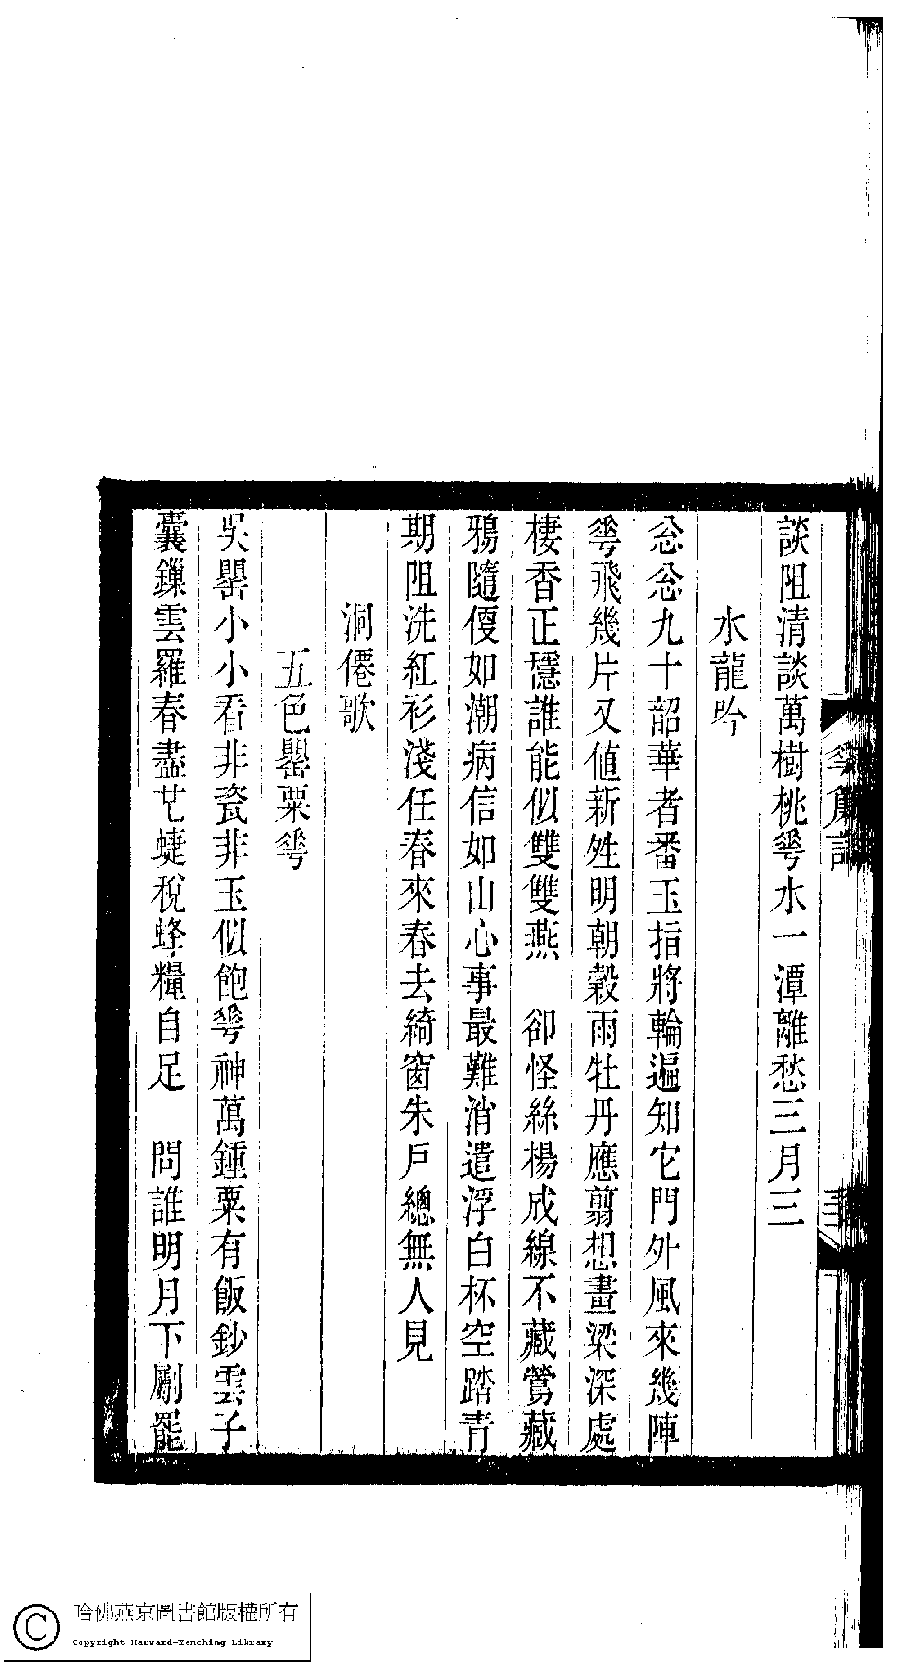 談阻清談萬樹桃蕚水一潭離愁三月三
水龍吟
忩忩九十韶華者番玉指將輪遍知它門外風來幾陣
蕚飛幾片又值新甡明朝穀雨牡丹應翦想畫梁深處
棲香正穩誰能似雙雙燕　卻怪絲楊成線不藏鶯藏
鴉隨偄如潮病信如山心事最難消遣浮白杯空踏青
期阻洗紅衫淺任春來春去綺窗朱戶總無人見
洞僊歌
五色罌粟蕚
吳罌小小看非瓷非玉似飽蕚神萬鍾粟有飯鈔雲子
囊鏁雲羅春盡芒蜨稅蜂糧自足　問誰明月下劚罷
哈佛燕京圖書館版權所有
Copyright Harvard-Yenching Library